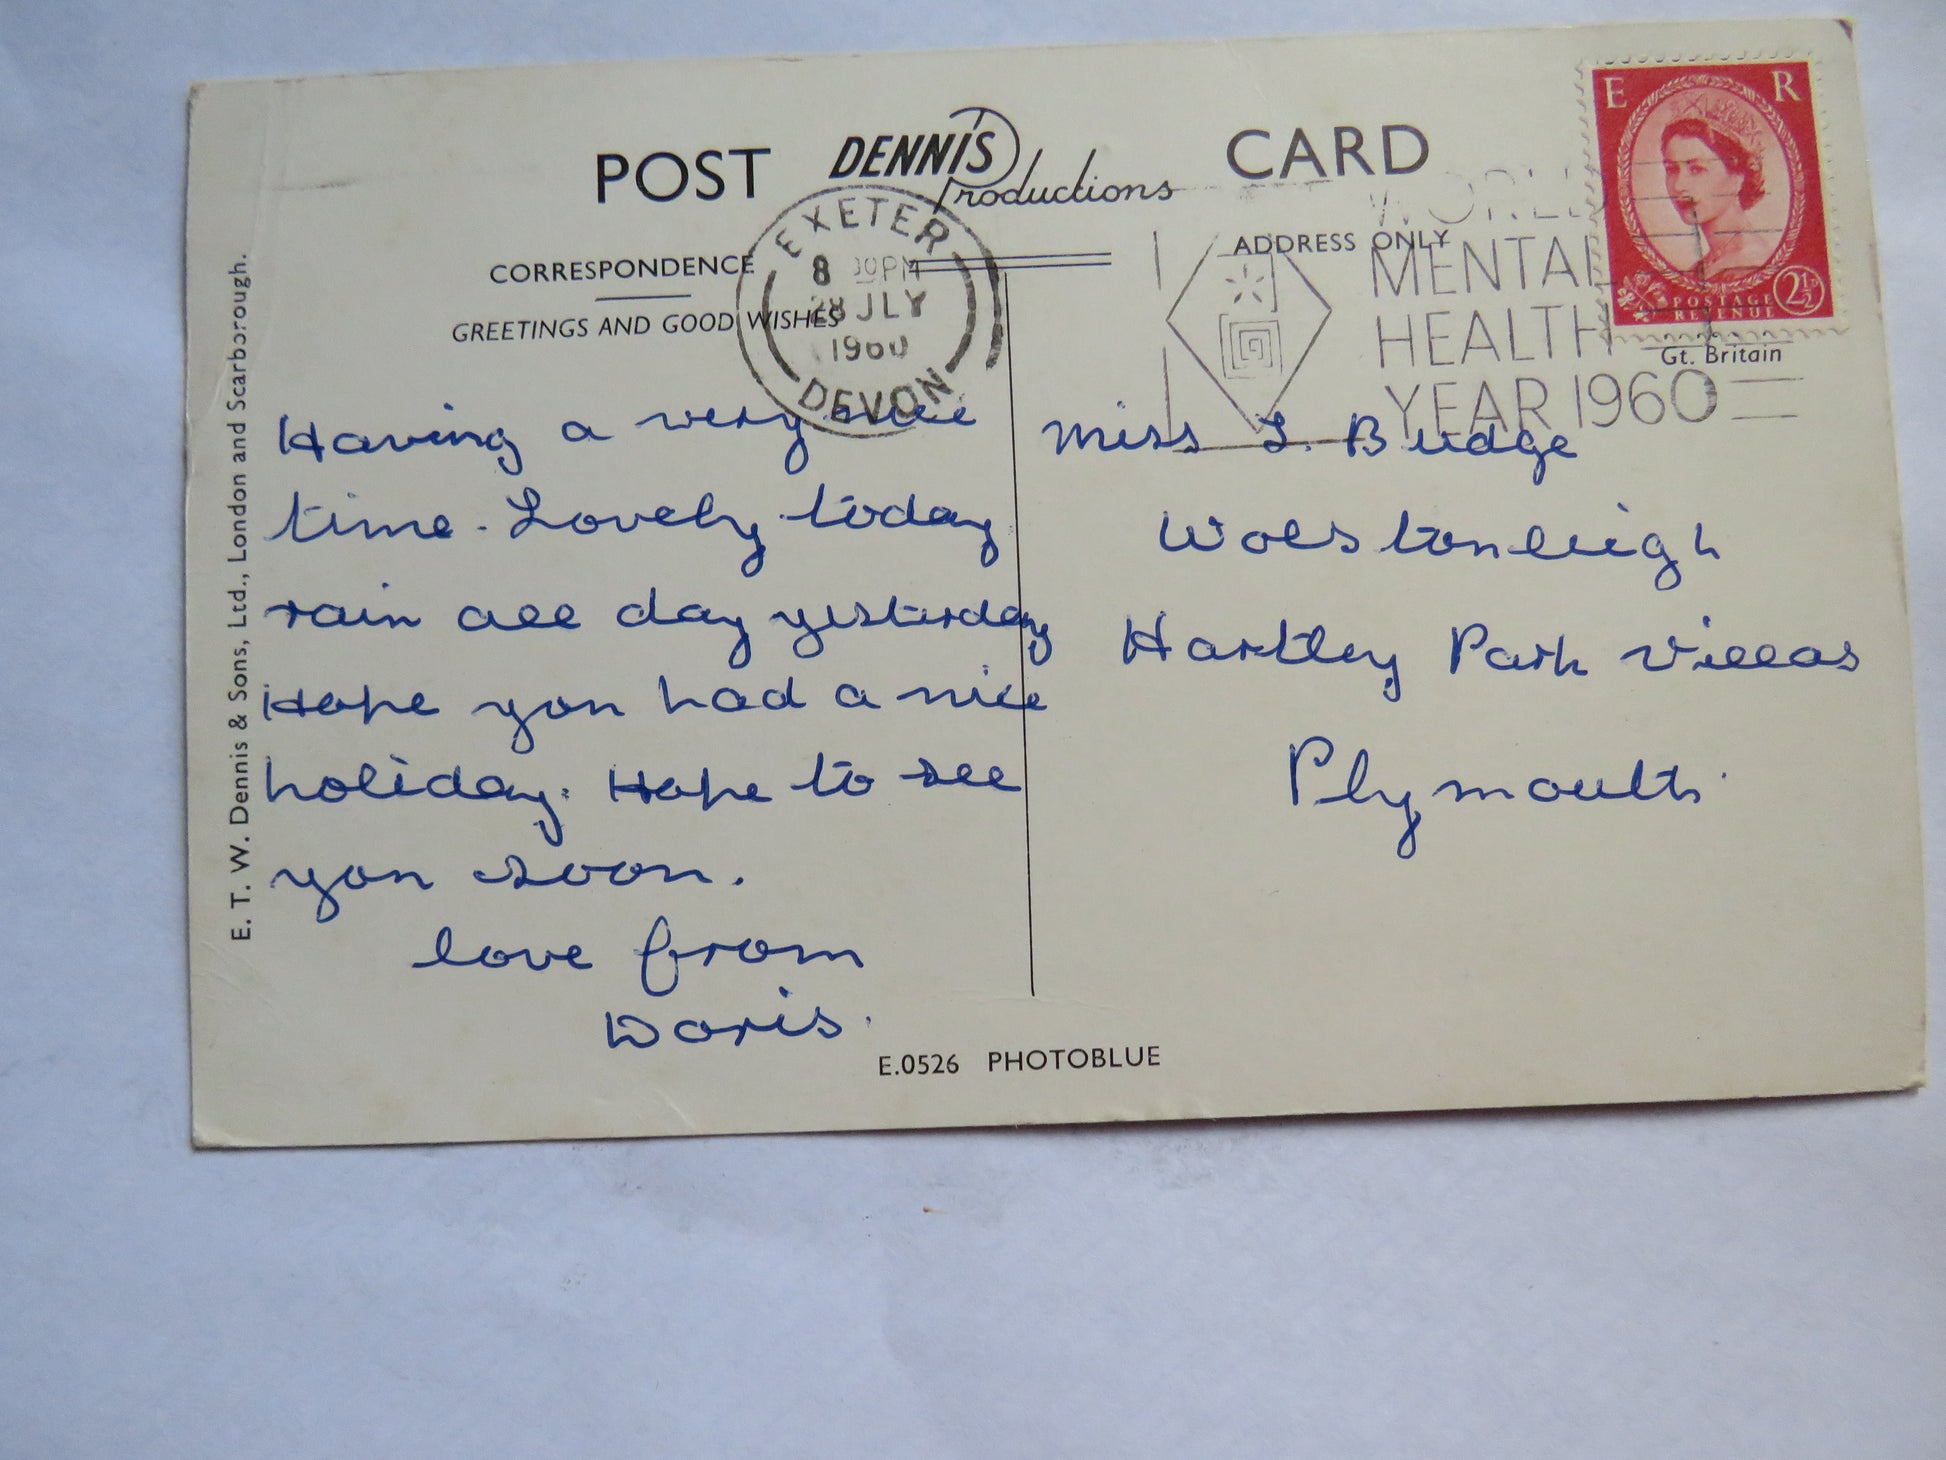 POST DENNIS Productions CARD
CORRESPONDENCE
GREETINGS AND GOOD WISHES
ADDRESS ONLY
EXETER
8 30PM
28 JLY
1960
DEVON
WORLD
MENTAL
HEALTH
YEAR 1960
E R
POSTAGE
REVENUE
2½D
Gt. Britain
E. T. W. Dennis & Sons, Ltd., London and Scarborough.
Having a very nice
time. Lovely today
rain all day yesterday
Hope you had a nice
holiday. Hope to see
you soon.
love from
Doris.
Miss I. Budge
Wolstonleigh
Hartley Park Villas
Plymouth
E.0526 PHOTOBLUE